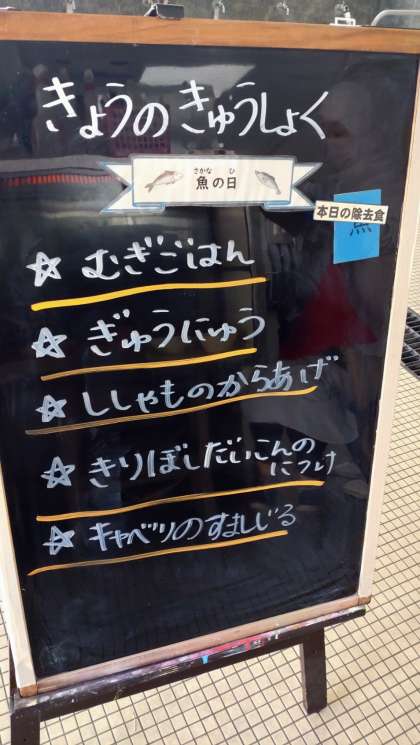 きょうのきゅうしょく
さかな ひ
魚の日
本日の除去食
魚
☆ むぎごはん
☆ ぎゅうにゅう
☆ ししゃものからあげ
☆ きりぼしだいこんの
につけ
☆ キャベツのすましじる